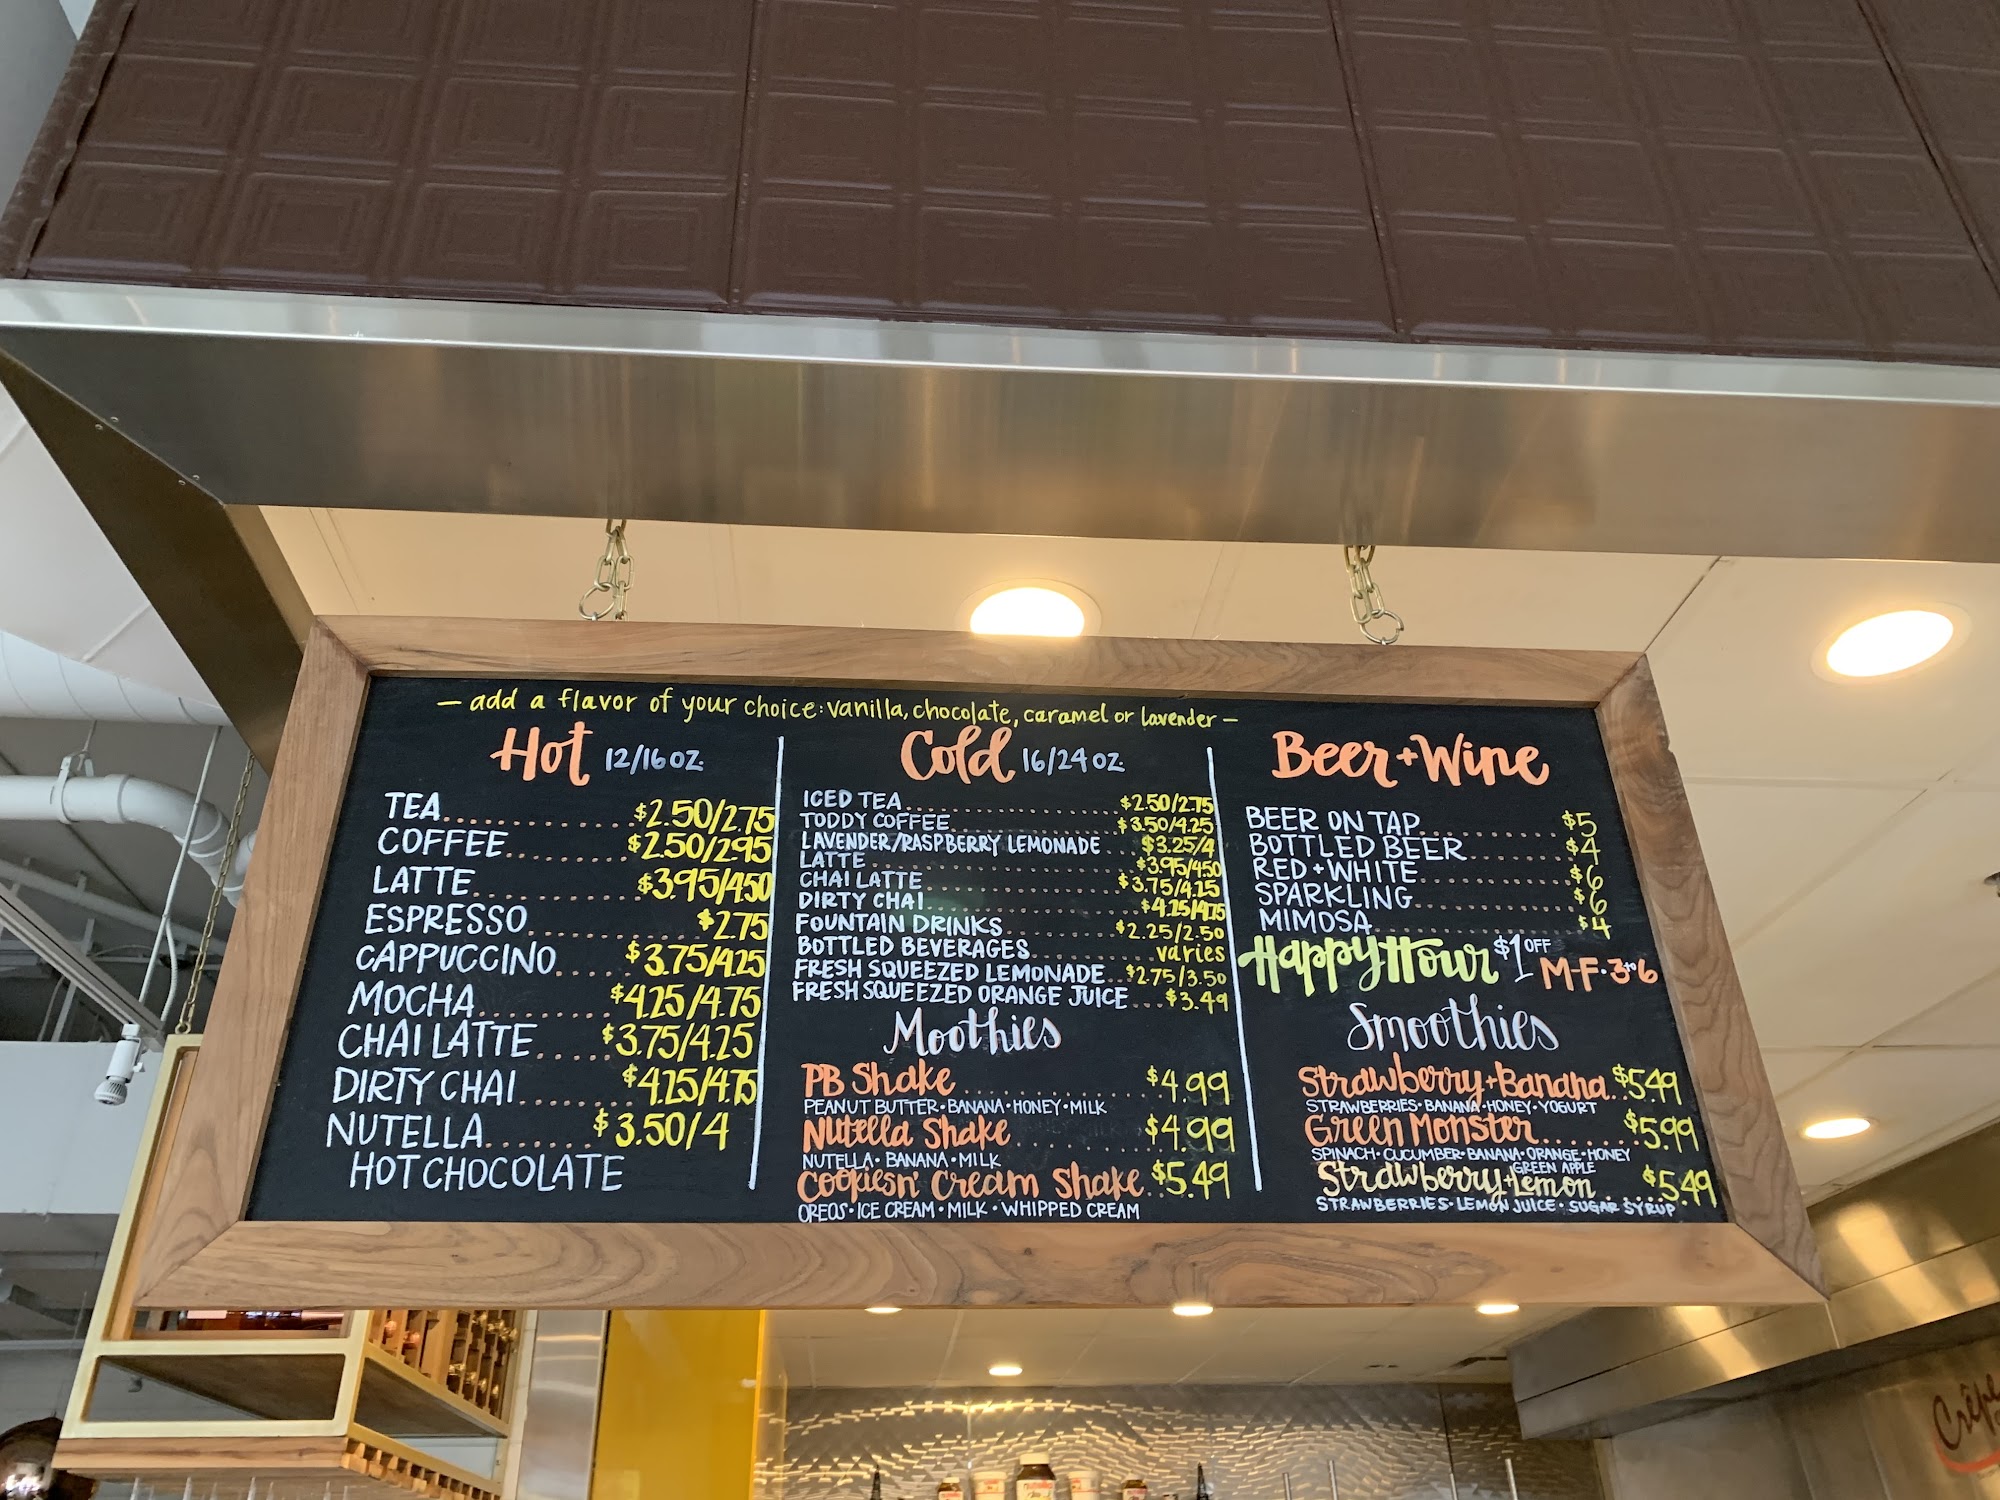 — add a flavor of your choice: vanilla, chocolate, caramel or lavender —
Hot 12/16 OZ.
TEA.............$2.50/2.75
COFFEE.........$2.50/2.95
LATTE............$3.95/4.50
ESPRESSO............$2.75
CAPPUCCINO.....$3.75/4.25
MOCHA..........$4.25/4.75
CHAI LATTE.....$3.75/4.25
DIRTY CHAI.......$4.25/4.75
NUTELLA.......$3.50/4
HOT CHOCOLATE
Cold 16/24 OZ.
ICED TEA....................$2.50/2.75
TODDY COFFEE................$3.50/4.25
LAVENDER/RASPBERRY LEMONADE...$3.25/4
LATTE.......................$3.95/4.50
CHAI LATTE..................$3.75/4.25
DIRTY CHAI..................$4.25/4.75
FOUNTAIN DRINKS...........$2.25/2.50
BOTTLED BEVERAGES............varies
FRESH SQUEEZED LEMONADE...$2.75/3.50
FRESH SQUEEZED ORANGE JUICE....$3.49
Moothies
PB Shake...............$4.99
PEANUT BUTTER • BANANA • HONEY • MILK
Nutella Shake..........$4.99
NUTELLA • BANANA • MILK
Cookies n' Cream Shake..$5.49
OREOS • ICE CREAM • MILK • WHIPPED CREAM
Beer + Wine
BEER ON TAP............$5
BOTTLED BEER.........$4
RED + WHITE.............$6
SPARKLING..............$6
MIMOSA.................$4
Happy Hour $1 OFF M-F • 3 to 6
Smoothies
Strawberry + Banana..$5.49
STRAWBERRIES • BANANA • HONEY • YOGURT
Green Monster.......$5.99
SPINACH • CUCUMBER • BANANA • ORANGE • HONEY
GREEN APPLE
Strawberry + Lemon......$5.49
STRAWBERRIES • LEMON JUICE • SUGAR SYRUP